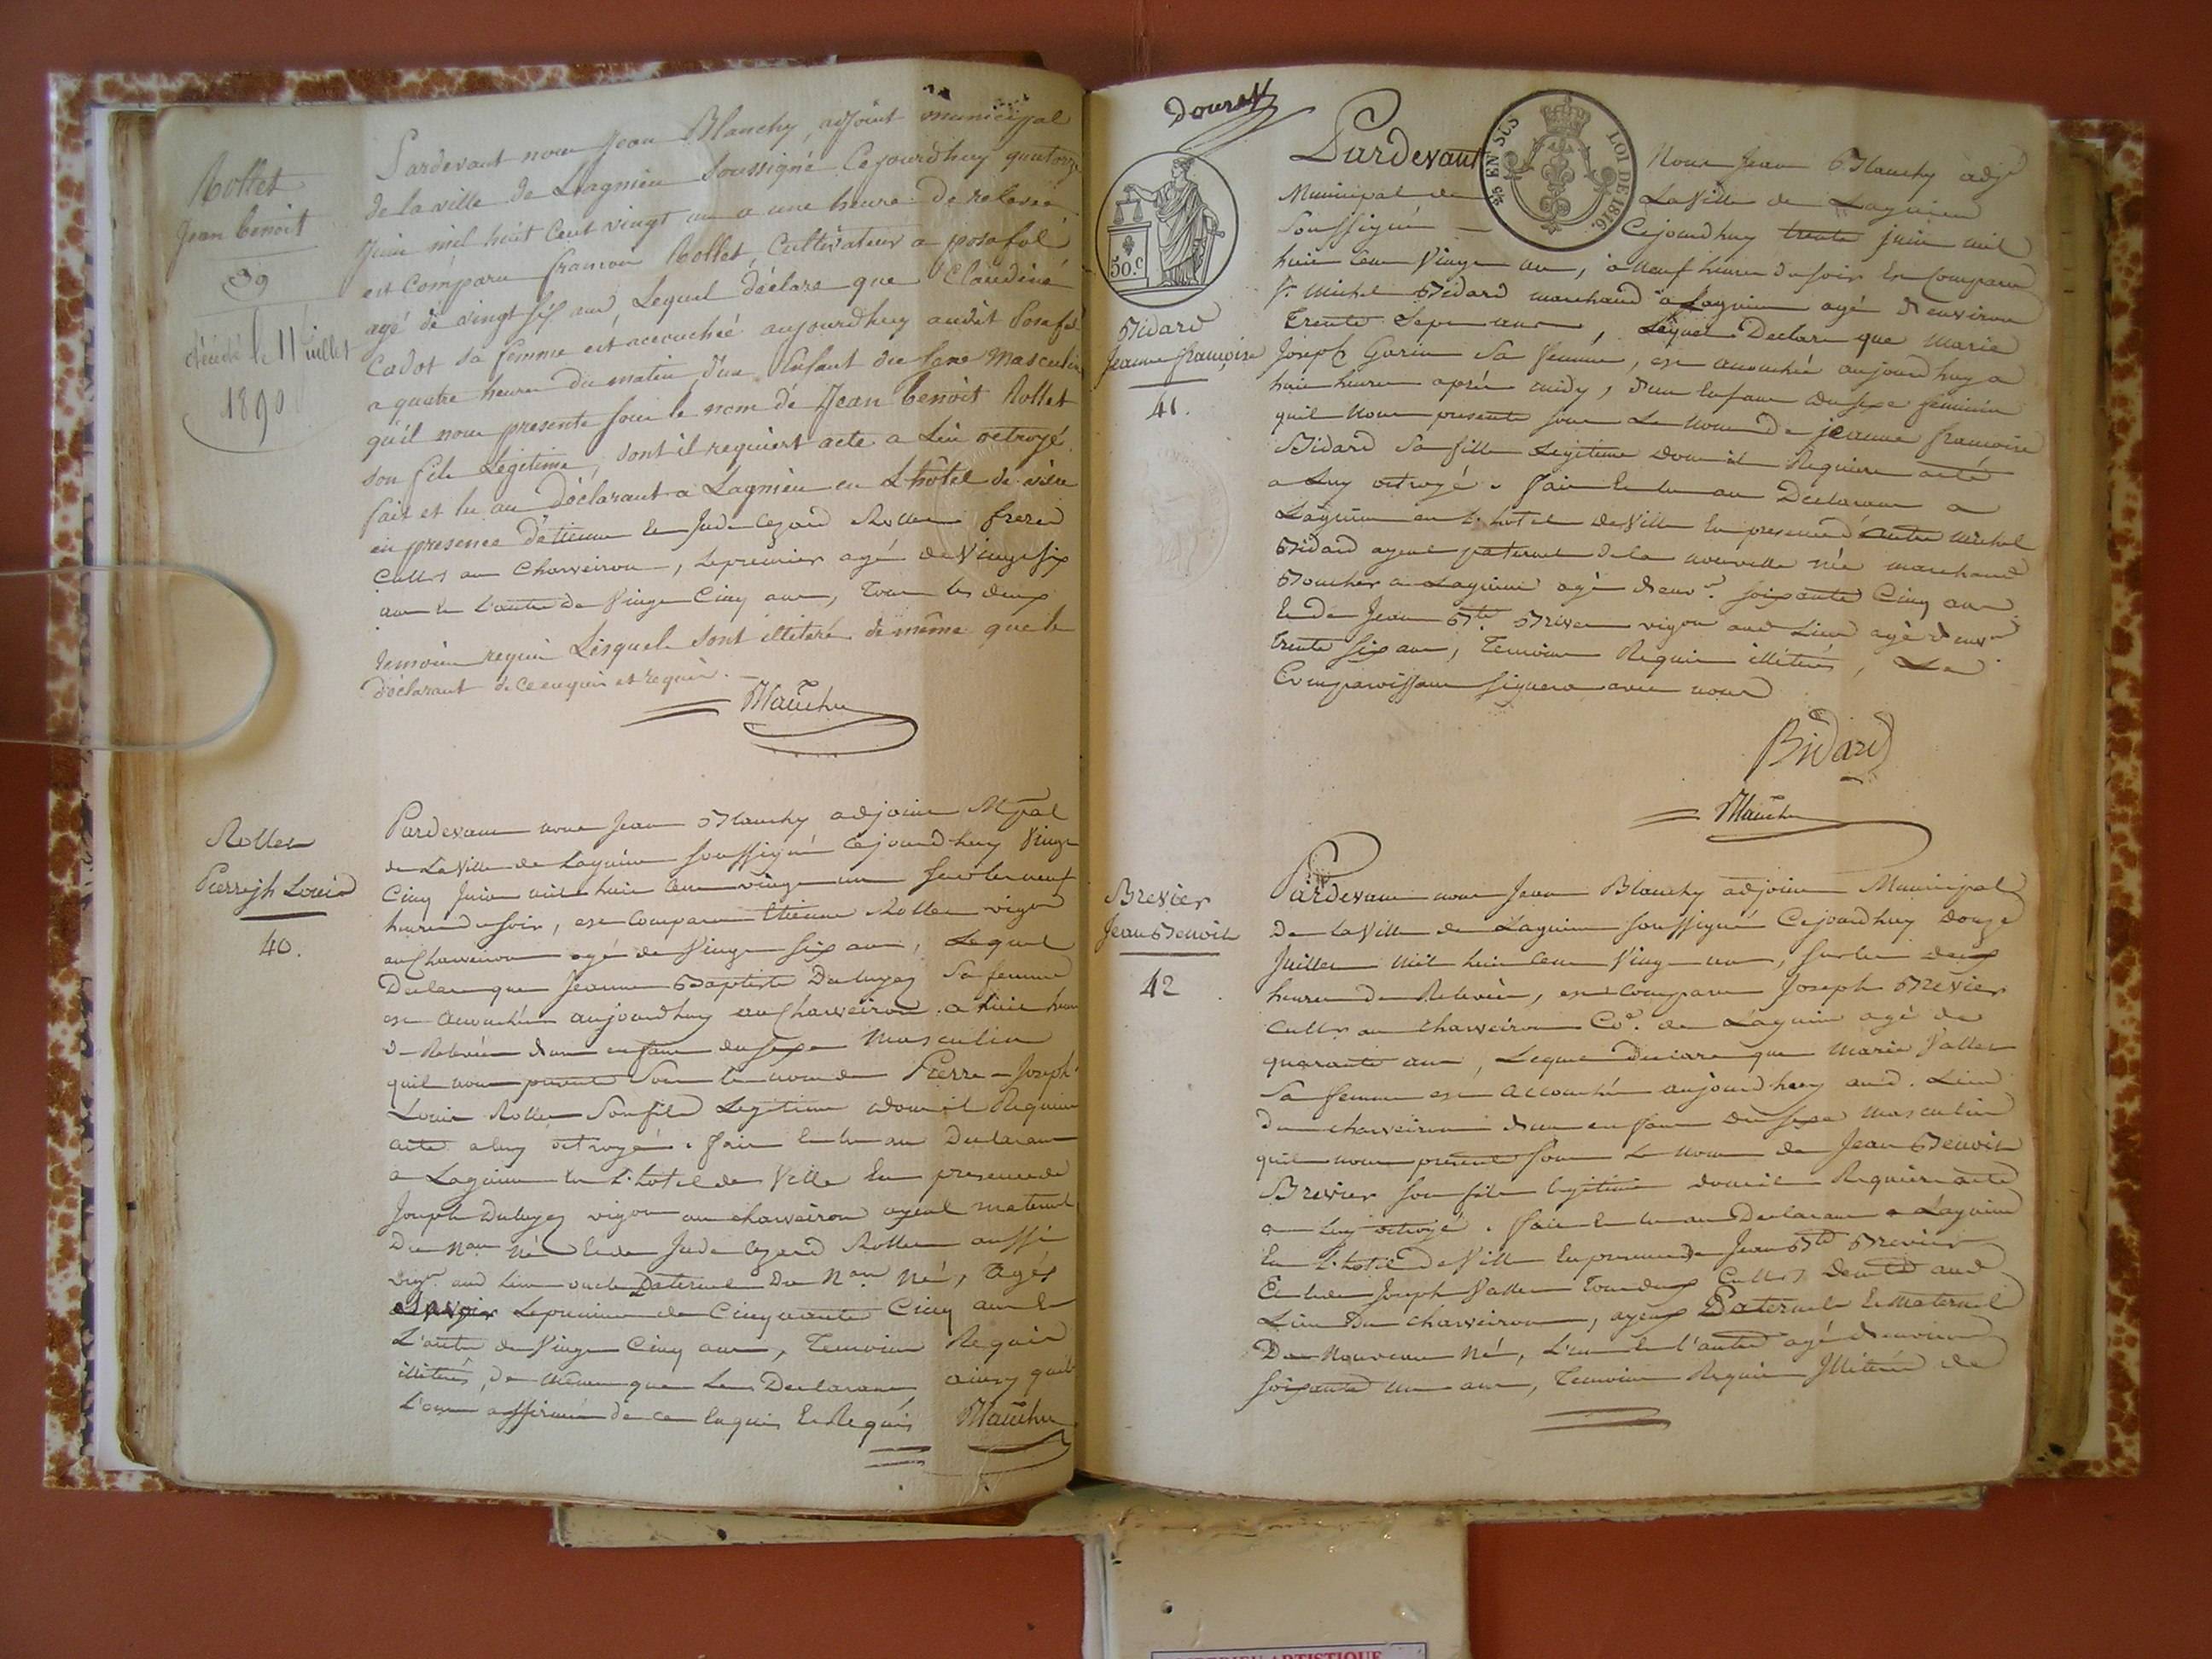 Rollet
Jean benoit
39
décédé le 11 juillet
1890
Pardevant nous Jean Blanchy, adjoint municipal
de la ville de Lagnieu soussigné Cejourdhuy quatorze
Juin mil huit Cent vingt un a une heure de relevée
est Comparu francois Rollet, Cultivateur a posafol
agé de vingt six ans, Lequel déclare que Claudine
Cadot sa femme est accouchée aujourdhuy audit Posafol
a quatre heures du matin d'un Enfant du Sexe Masculin
qu'il nous presente sous le nom de Jean benoit Rollet
son fils Légitime, dont il requiert acte a Lui octroyé
fait et lu au Déclarant a Lagnieu en L'hôtel de ville
en presence d'etienne et Jude Cezard Rollet freres
Cultrs au Charveiron, Le premier agé de Vingt Six
ans et L'autre de Vingt Cinq ans, Tous les deux
temoins requis Lesquels sont illiterés de même que le
déclarant de ce enquis et requis.
Blanchy
Rollet
Pierre jh Louis
40.
Pardevant nous Jean Blanchy adjoint Mpal
de La Ville de Lagnieu soussigné Cejourdhuy Vingt
Cinq Juin mil huit Cent vingt un sur les neuf
heures du soir, est Comparu Etienne Rollet vigon
au Charveiron agé de Vingt Six ans, Lequel
Declare que Jeanne Baptiste Duluyez Sa femme
est Accouchée aujourdhuy au Charveiron a huit heures
de Relevée d'un enfant du sexe Masculin
quil nous presente Sous le nom de Pierre - Joseph
Louis Rollet Son fils Legitime dont il Requiert
acte a luy octroyé. fait et lu au Declarant
a Lagnieu en L'hotel de Ville En presence de
Joseph Duluyez vigon au charveiron ayeul maternel
Du Nau Né et de Jude Cezard Rollet aussi
vign aud Lieu oncle Paternel Du Nau Né, Agés
Le premier de Cinquante Cinq ans et
L'autre de Vingt Cinq ans, Temoins Requis
illiterés, de même que Le Declarant ainsy quils
L'ont affirmé de ce Enquis Et Requis Blanchy
Douray
50.c
4/5 EN SUS LOI DE 1816.
Bidard
Jeanne françoise
41.
Pardevant Nous Jean Blanchy adjt
Municipal de La Ville de Lagnieu
Soussigné Cejourdhuy trente juin mil
huit Cent Vingt un, à Neuf heures du soir Est Comparu
Sr. Michel Bidard marchand a Lagnieu agé d'environ
Trente Sept ans, Lequel Declare que Marie
Joseph Garin Sa femme, est accouchée aujourdhuy a
huit heures aprés midy, d'un Enfant du sexe feminin
quil Nous presente sous Le Nom de jeanne francoise
Bidard Sa fille Legitime dont il Requiert acte
a Luy octroyé. fait Et lu au Declarant a
Lagnieu en L'hotel de Ville En presence d'autre Michel
Bidard ayeul paternel de la nouvelle née marchand
Boucher a Lagnieu agé d'envn. soixante Cinq ans
Et de Jean Bte Brivet vigon aud Lieu agé d'envn
trente Six ans, Temoins Requis illiterés, Le
Comparoissant signera avec nous
Bidard
Blanchy
Brevier
Jean Benoit
42
Pardevant nous Jean Blanchy adjoint Municipal
De la Ville de Lagnieu soussigné Cejourdhuy Douze
Juillet Mil huit Cent Vingt un, sur les deux
heures de Relevée, est Comparu Joseph Brevier
Cultr au charveiron Cne. de Lagnieu agé de
quarante ans, Lequel Declare que Marie Vallet
Sa femme est Accouchée aujourdhuy aud. Lieu
du charveiron d'un enfant Du sexe Masculin
quil nous presente sous Le Nom de Jean Benoit
Brevier son fils legitime dont il Requiert acte
a Luy octroyé. fait Et lu au Declarant a Lagnieu
En L'hotel De Ville En presence de Jean Bte Brevier
Et de Joseph Vallet Tous deux Cultrs Demts aud
Lieu Du charveiron, ayeux Paternel Et Maternel
Du Nouveau Né, L'un Et l'autre agé d'environ
soixante un ans, Temoins Requis Illiterés de